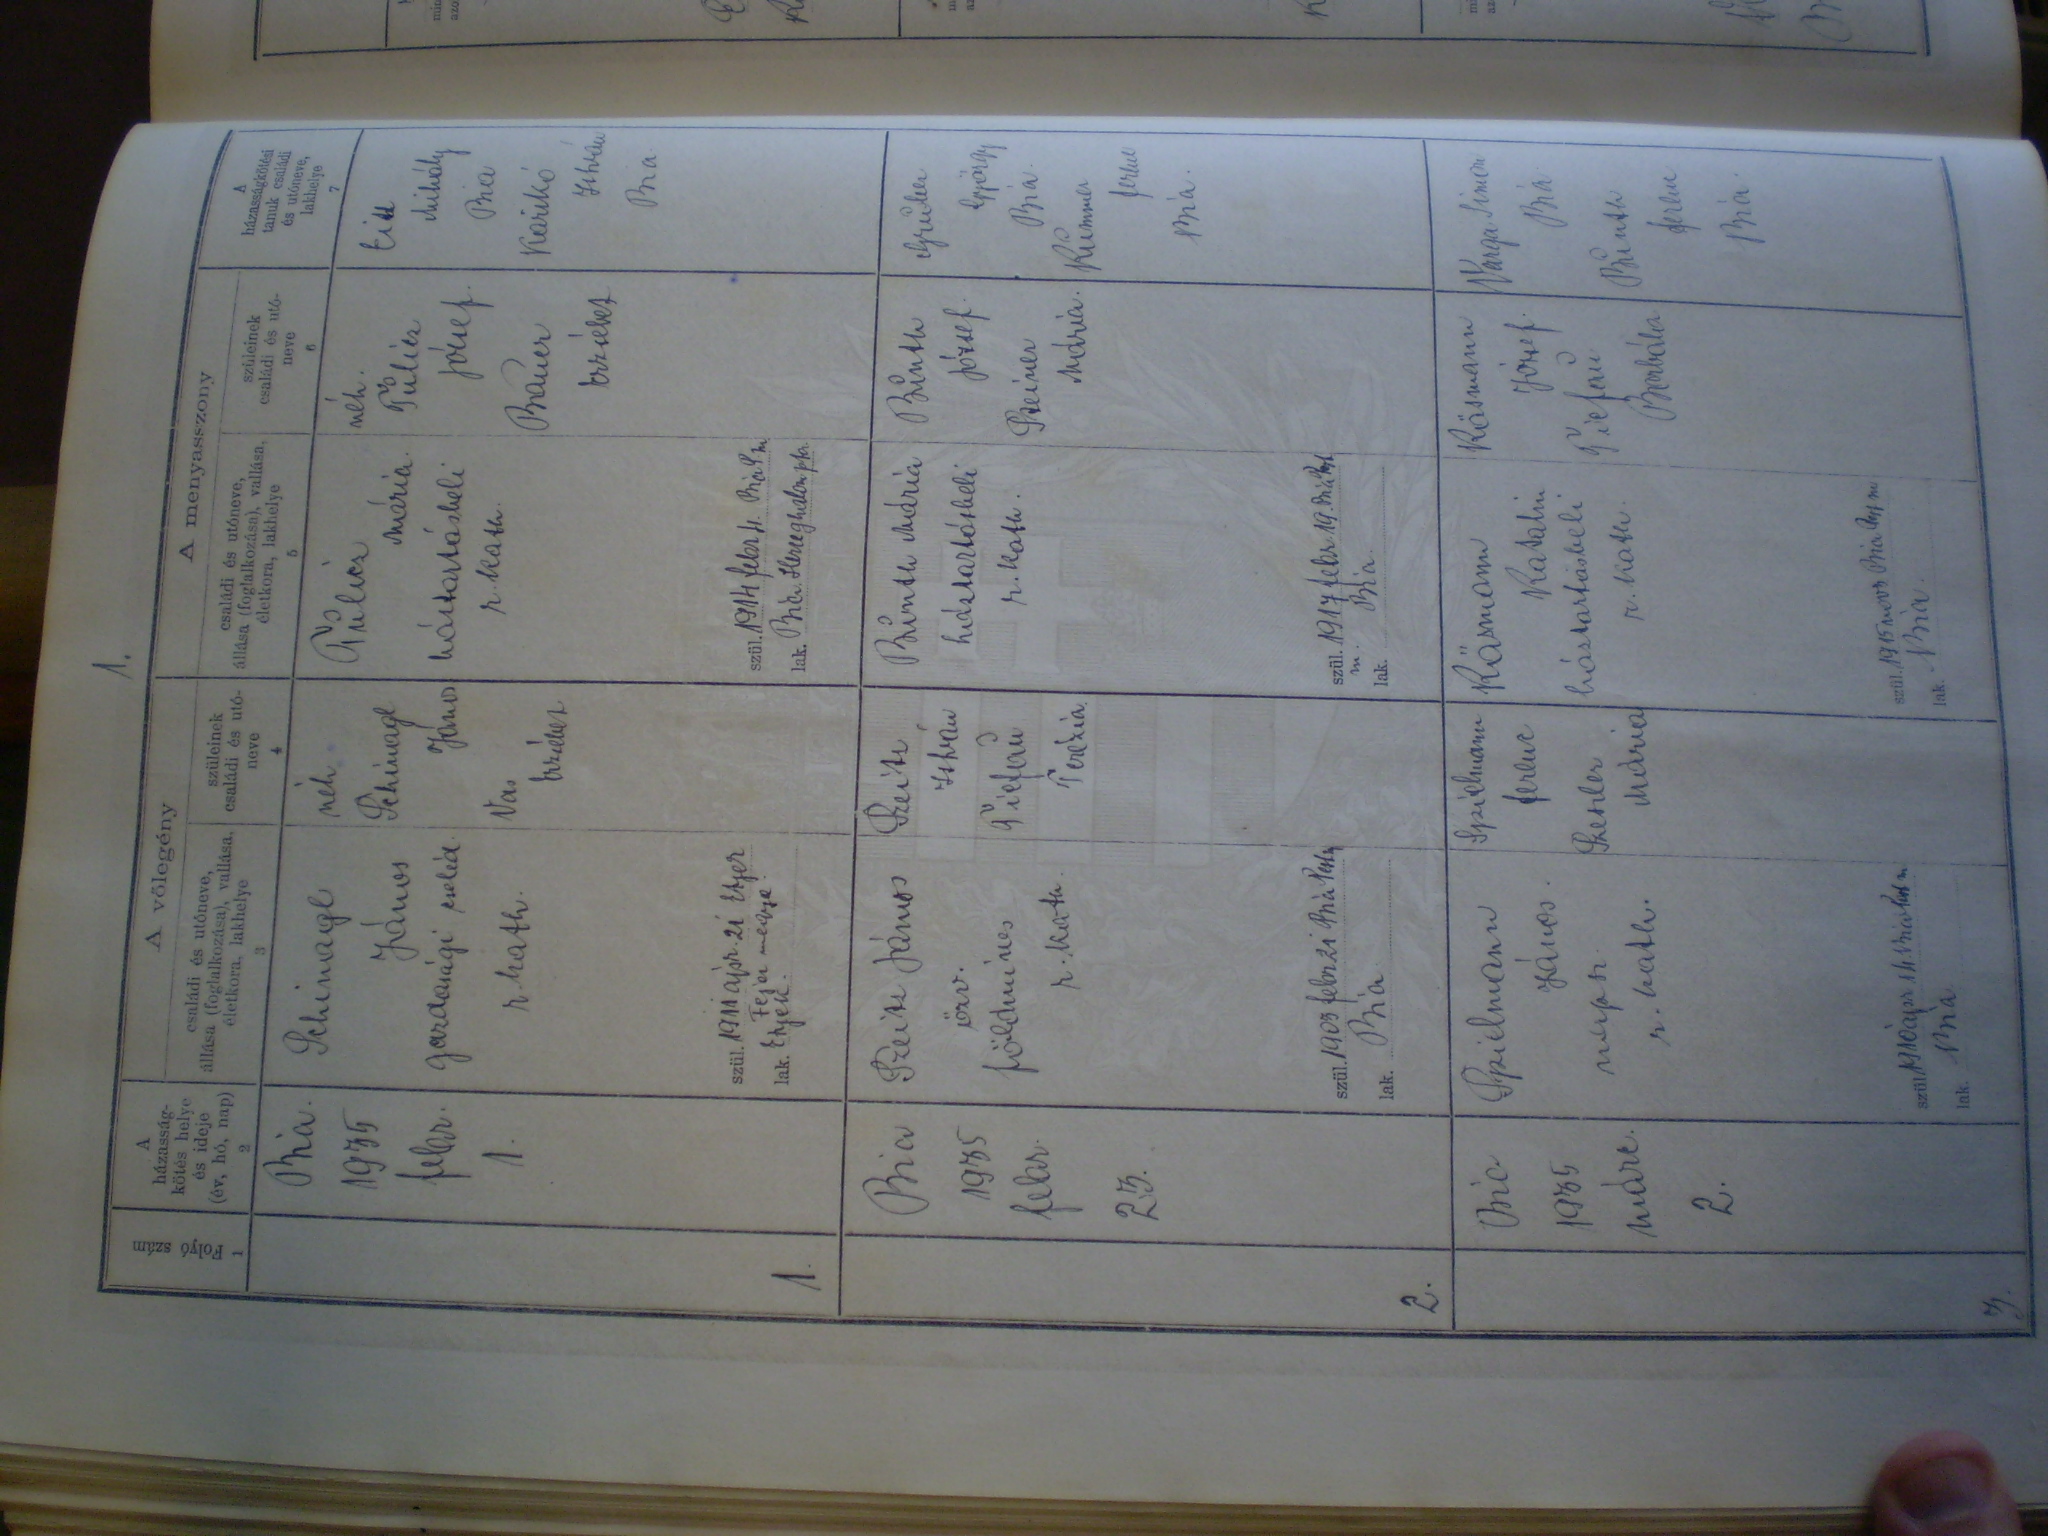 1.
Folyó szám
1
A házasság-
kötés helye
és ideje
(év, hó, nap)
2
A vőlegény
családi és utóneve,
állása (foglalkozása), vallása,
életkora, lakhelye
3
szüleinek
családi és utó-
neve
4
A menyasszony
családi és utóneve,
állása (foglalkozása), vallása,
életkora, lakhelye
5
szüleinek
családi és utó-
neve
6
A
házasságkötési
tanuk családi
és utóneve,
lakhelye
7
1.
Bia.
1935
febr.
1.
Schinagl
János
gazdasági cseléd
r. kath.
szül. 1911 ápr. 21 Etyek
Fejér megye.
lak. Etyek.
néh.
Schinagl
János
Vas
Erzsébet
Mária.
háztartásbeli
r. kath.
szül. 1914 febr. 4. Bia
lak. Bia. Herceghalom pta.
néh.
József.
Bauer
Erzsébet
Mihály
Bia
Karkó
István
Bia.
2.
Bia
1935
febr.
23.
Szeitz János
özv.
földmíves
r. kath.
szül. 1903 febr 21 Bia Pest
lak.
Bia.
Szeitz
István
Tiefau
Terézia.
Mária
háztartásbeli
r. kath.
szül. 1917 febr. 19. Bia Pest
m. Bia.
lak.
József.
Mária.
György
Bia.
Kümmer
Ferenc
Bia.
3.
Bia
1935
márc.
2.
Spielmann
János.
r. kath.
szül. 1910 ápr 14. Bia Pest m.
lak. Bia
Spielmann
Ferenc
Mária
Kösmann
Katalin
háztartásbeli
r. kath.
szül. 1915 nov 3 Bia Pest m
lak. Bia.
Kösmann
József.
Tiefau
Borbála
Varga Simon
Bia
Ferenc
Bia.